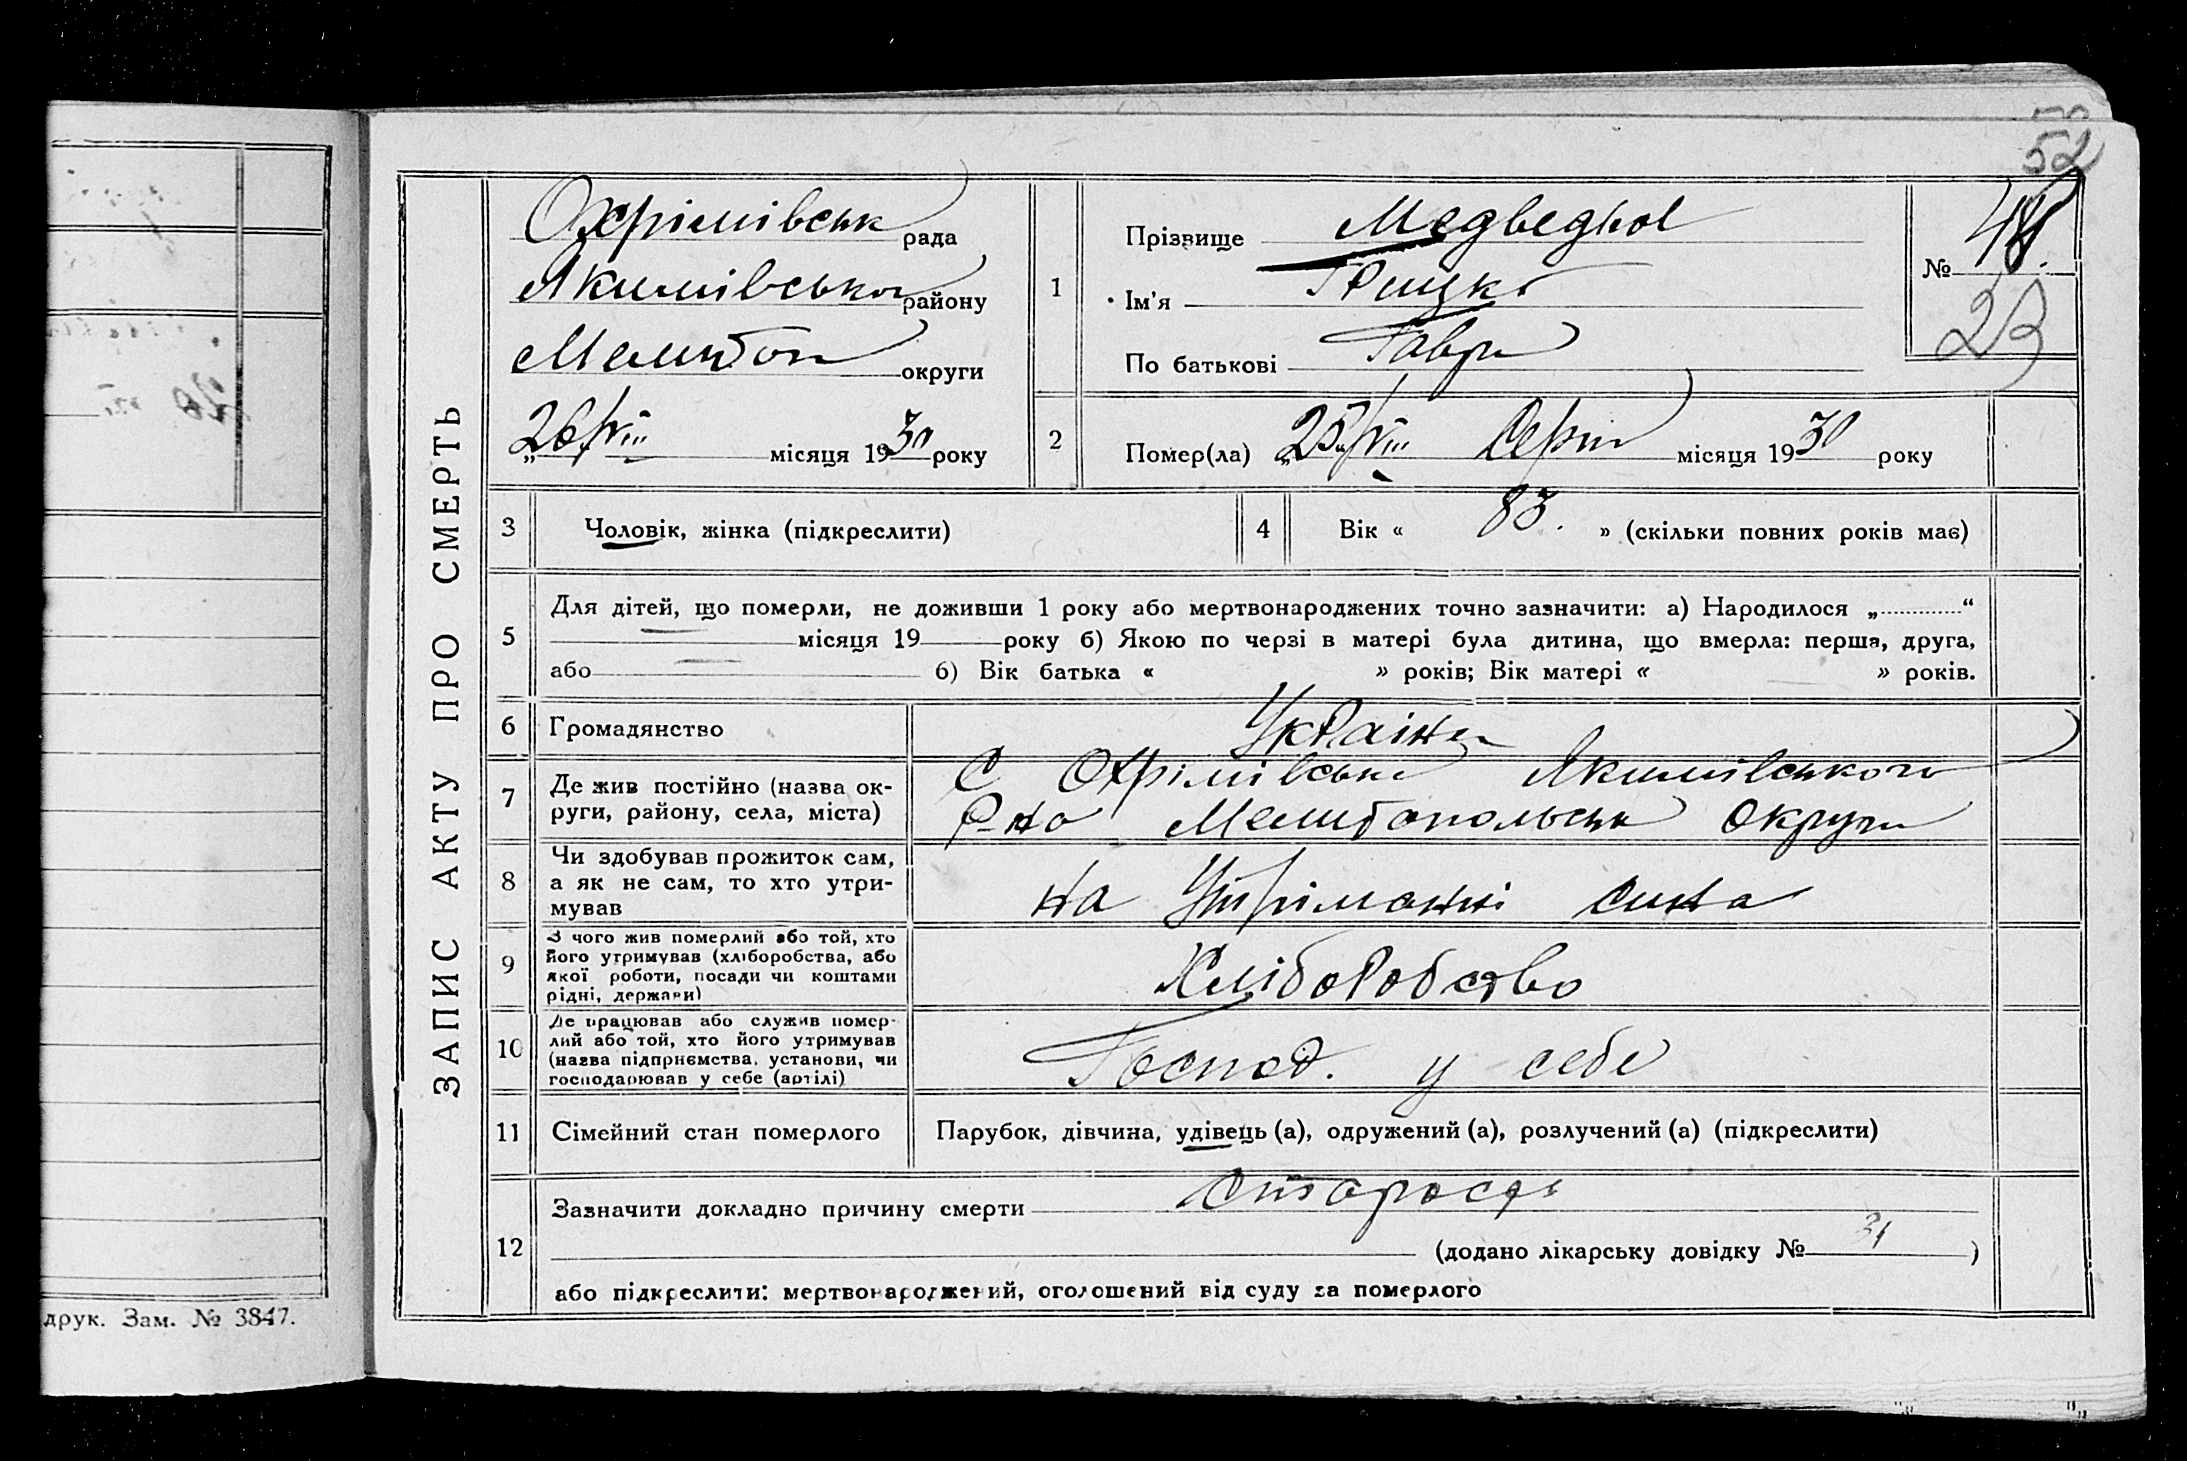 52
ЗАПИС АКТУ ПРО СМЕРТЬ
Охрімівськ рада
Якимівського району
Мелитоп округи
„26/VIII місяця 1930 року
1
Прізвище Медведєв
Ім'я Грицко
По батькові Гаври
№ 48.
23
2
Помер(ла) „25/VIII Серпн місяця 1930 року
3
Чоловік, жінка (підкреслити)
4
Вік « 83. » (скільки повних років має)
5
Для дітей, що померли, не доживши 1 року або мертвонароджених точно зазначити: а) Народилося „ “
місяця 19 року б) Якою по черзі в матері була дитина, що вмерла: перша, друга,
або б) Вік батька « » років; Вік матері « » років.
6
Громадянство
Україн
7
Де жив постійно (назва ок-
руги, району, села, міста)
С Охрімівськ Якимівського
Р-на Мелитопольськ Округи
8
Чи здобував прожиток сам,
а як не сам, то хто утри-
мував
на Утріманні сина
9
З чого жив померлий або той, хто
його утримував (хліборобства, або
якої роботи, посади чи коштами
рідні, держави)
Хліборобство
10
Де працював або служив помер-
лий або той, хто його утримував
(назва підприємства, установи, чи
господарював у себе (артілі)
Господ. у себе
11
Сімейний стан померлого
Парубок, дівчина, удівець (а), одружений (а), розлучений (а) (підкреслити)
12
Зазначити докладно причину смерти Старость
(додано лікарську довідку № 31 )
або підкреслити: мертвонароджений, оголошений від суду за померлого
друк. Зам. № 3847.